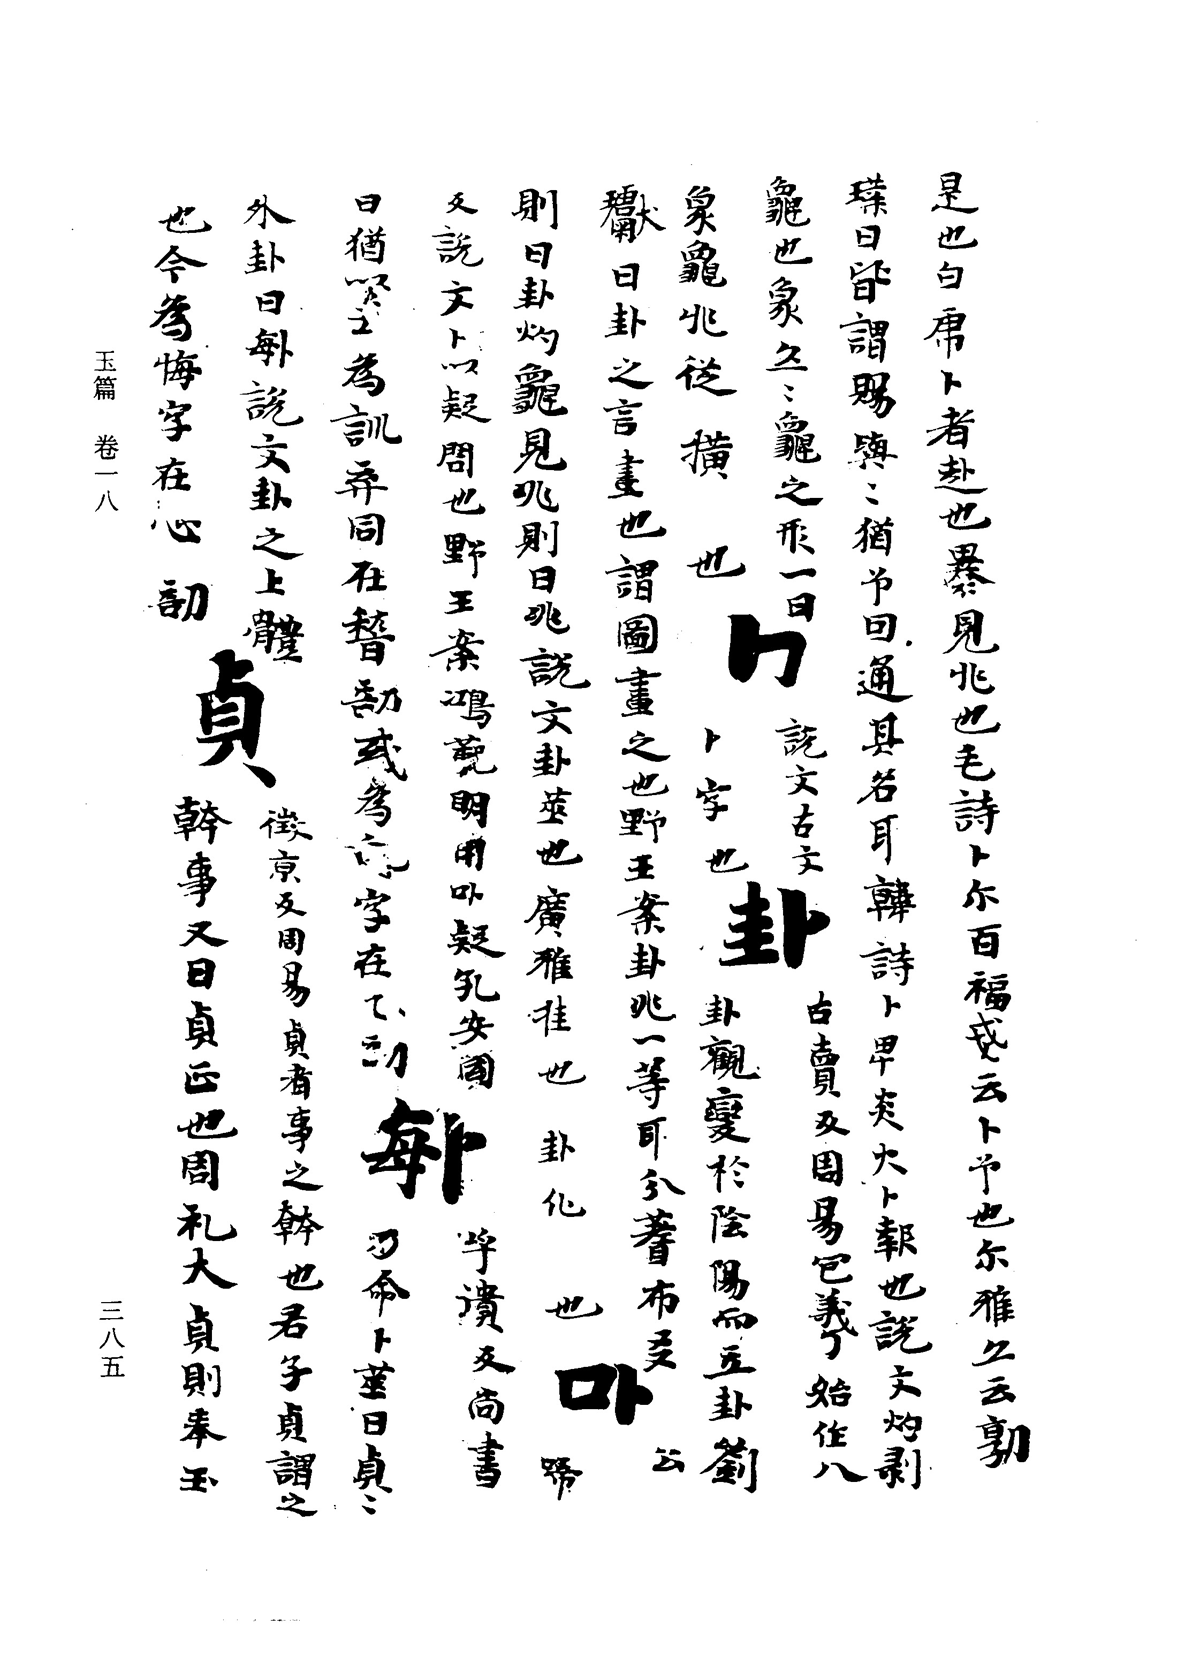 是也白虎卜者赴也㬥見兆也毛詩卜尔百福戔云卜予也尔雅久云郭
璞曰皆謂賜與〻猶予因通其名耳韓詩卜畀炎火卜報也說文灼剥
龜也象久〻龜之形一曰
象龜兆從横也
卜
說文古文
卜字也
卦
古賣反周易包羲了始作八
卦觀變於陰陽而立卦劉
瓛曰卦之言畫也謂圖畫之也野王案卦兆一等耳分蓍布爻
則曰卦灼龜見兆則曰兆說文卦莁也廣雅挂也卦化也
卟
公
啼
反說文卜以疑問也野王案鴻範明用卟疑孔安國
曰猶以之為訓弄同在部或為字在部
𠧩
呼潰反尚書
乃命卜莁曰貞〻
外卦曰𠧩說文卦之上體
也今為悔字在心部
貞
徵京反周易貞者事之幹也君子貞謂之
幹事又曰貞正也周礼大貞則奉玉
玉篇 卷一八
三八五